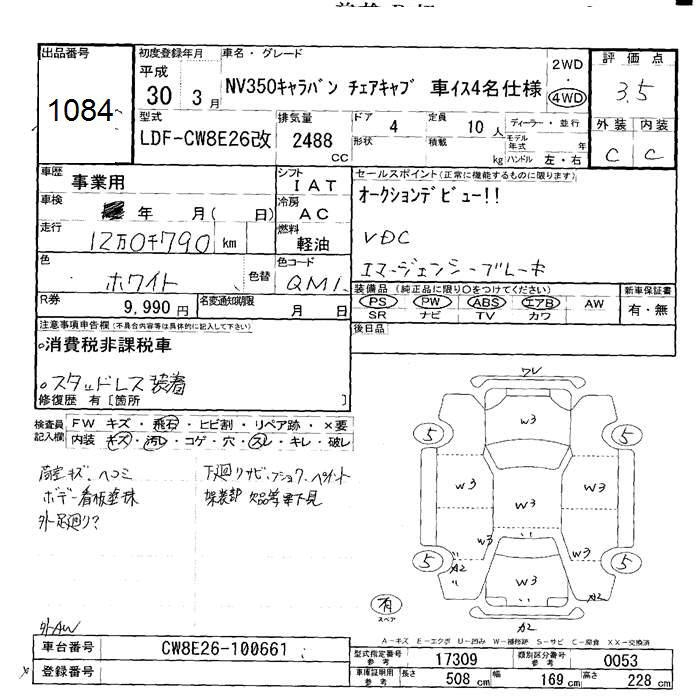 出品番号
1084
初度登録年月
平成
30 3月
車名・グレード
NV350キャラバン チェアキャブ 車イス4名仕様
2WD
・
4WD
評価点
3.5
外装 内装
C C
型式
LDF-CW8E26改
排気量
2488
cc
ドア 4
形状
定員 10 人
積載 kg
ディーラー・並行
モデル年式 年
ハンドル 左・右
車歴 事業用
車検 年 月( 日)
走行 12万0千790 km
色 ホワイト 色替
R券 9,990円
名変通知期限 月 日
シフト IAT
冷房 AC
燃料 軽油
色コード QM1
セールスポイント(正常に機能するものに限ります)
オークションデビュー!!
VDC
エマージェンシーブレーキ
装備品(純正品に限り○をつけてください)
PS PW ABS エアB AW
SR ナビ TV カワ
新車保証書
有・無
後日品
注意事項申告欄(不具合内容等は具体的に記入して下さい)
○消費税非課税車
○スタッドレス装着
修復歴 有[箇所 ]
検査員記入欄
FW キズ・飛石・ヒビ割・リペア跡・×要
内装 キズ・汚レ・コゲ・穴・スレ・キレ・破レ
荷室キズ、ヘコミ
ボデー看板塗抹
外足廻り?
下廻りサビ、
架装部 欠品等要下見
外AW
ワレ
W3
5 5
W3 W3 W3
W3 W3
A2
5 5
W3
A2
A2
有
スペア
A-キズ E-エクボ U-凹み W-補修跡 S-サビ C-腐食 XX-交換済
車台番号 CW8E26-100661
登録番号
型式指定番号 参考 17309
類別区分番号 参考 0053
車庫証明用 参考
長さ 508 cm 幅 169 cm 高さ 228 cm